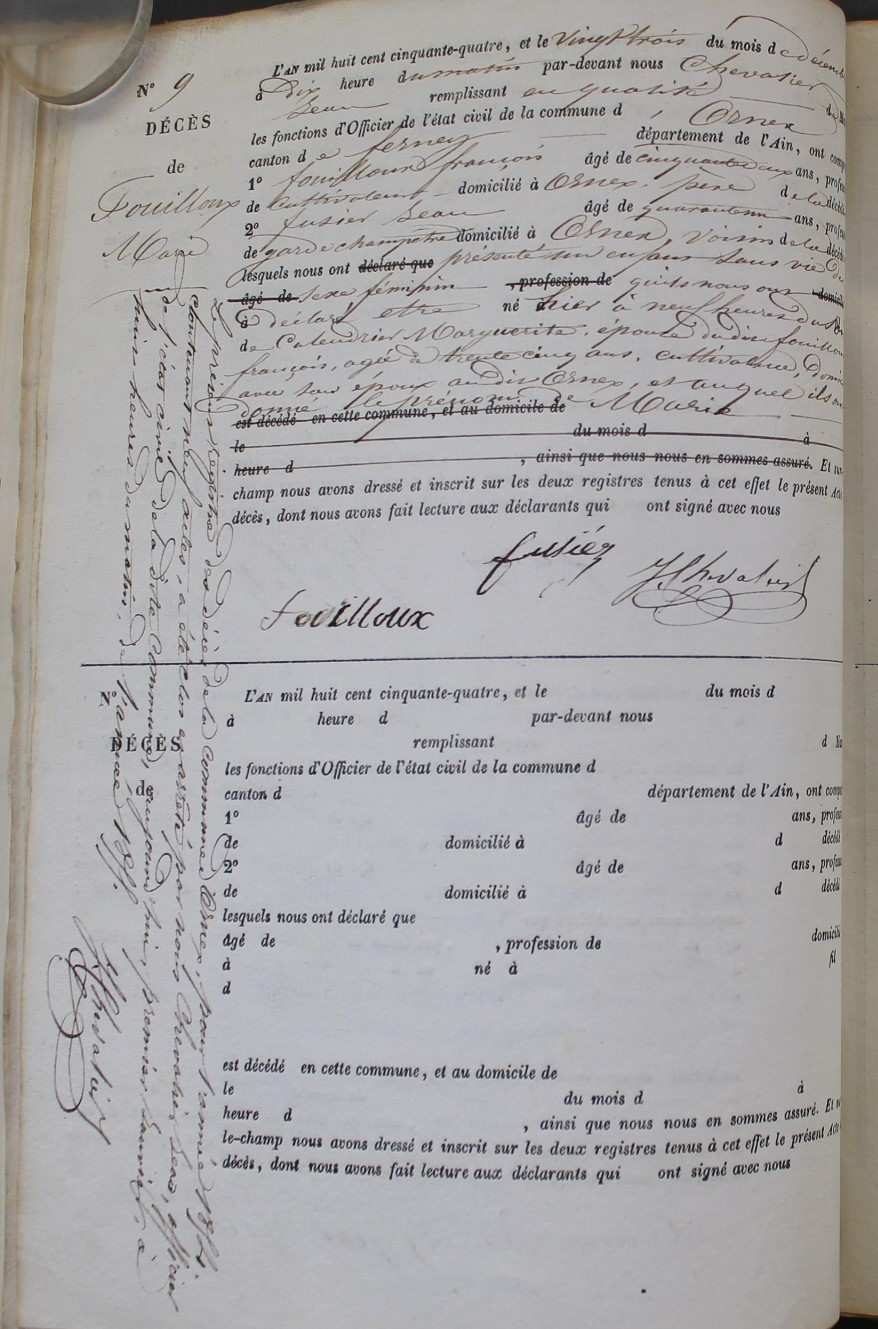 N° 9
DÉCÈS
de
Fouilloux
Marie
L'AN mil huit cent cinquante-quatre, et le vingt trois du mois d
à Dix heure du matin par-devant nous Chevalier
Jean remplissant en qualité
les fonctions d'Officier de l'état civil de la commune d Ornex
canton d e ferney département de l'Ain, ont
1° fouilloux françois âgé de cinquante deux ans,
de Cultivateur domicilié à Ornex. père de la
2° fusier Jean âgé de ans,
de garde champetre domicilié à Ornex, voisin de la
lesquels nous ont déclaré que présenté un enfant sans vie de
âgé de sexe féminin , profession de qu'ils nous ont
à déclaré etre né hier à neuf heures du
de Marguerite, épouse du dit fouilloux
françois, agée de trente cinq ans, cultivateur,
avec son époux au dit Ornex, et auquel ils ont
donné le prénom de Marie
est décédé en cette commune, et au domicile de
le du mois d à
heure d , ainsi que nous nous en sommes assuré. Et
champ nous avons dressé et inscrit sur les deux registres tenus à cet effet le présent
décès, dont nous avons fait lecture aux déclarants qui ont signé avec nous
fusier
Chevalier
Fouilloux
Le présent Registre des décès de la Commune d'Ornex, pour l'année 1854
contenant neuf actes, a été clos et arrêté par nous Chevalier Jean, officier
de l'état civil de la dite Commune, aujourd'hui, premier Janvier, à
huit heures du matin, de l'année 1855.
Chevalier
DÉCÈS
de
L'AN mil huit cent cinquante-quatre, et le du mois d
à heure d par-devant nous
remplissant d
les fonctions d'Officier de l'état civil de la commune d
canton d département de l'Ain, ont
1° âgé de ans,
de domicilié à d
2° âgé de ans,
de domicilié à d
lesquels nous ont déclaré que
âgé de , profession de
à né à fil
d
est décédé en cette commune, et au domicile de
le du mois d à
heure d , ainsi que nous nous en sommes assuré. Et
le-champ nous avons dressé et inscrit sur les deux registres tenus à cet effet le présent
décès, dont nous avons fait lecture aux déclarants qui ont signé avec nous